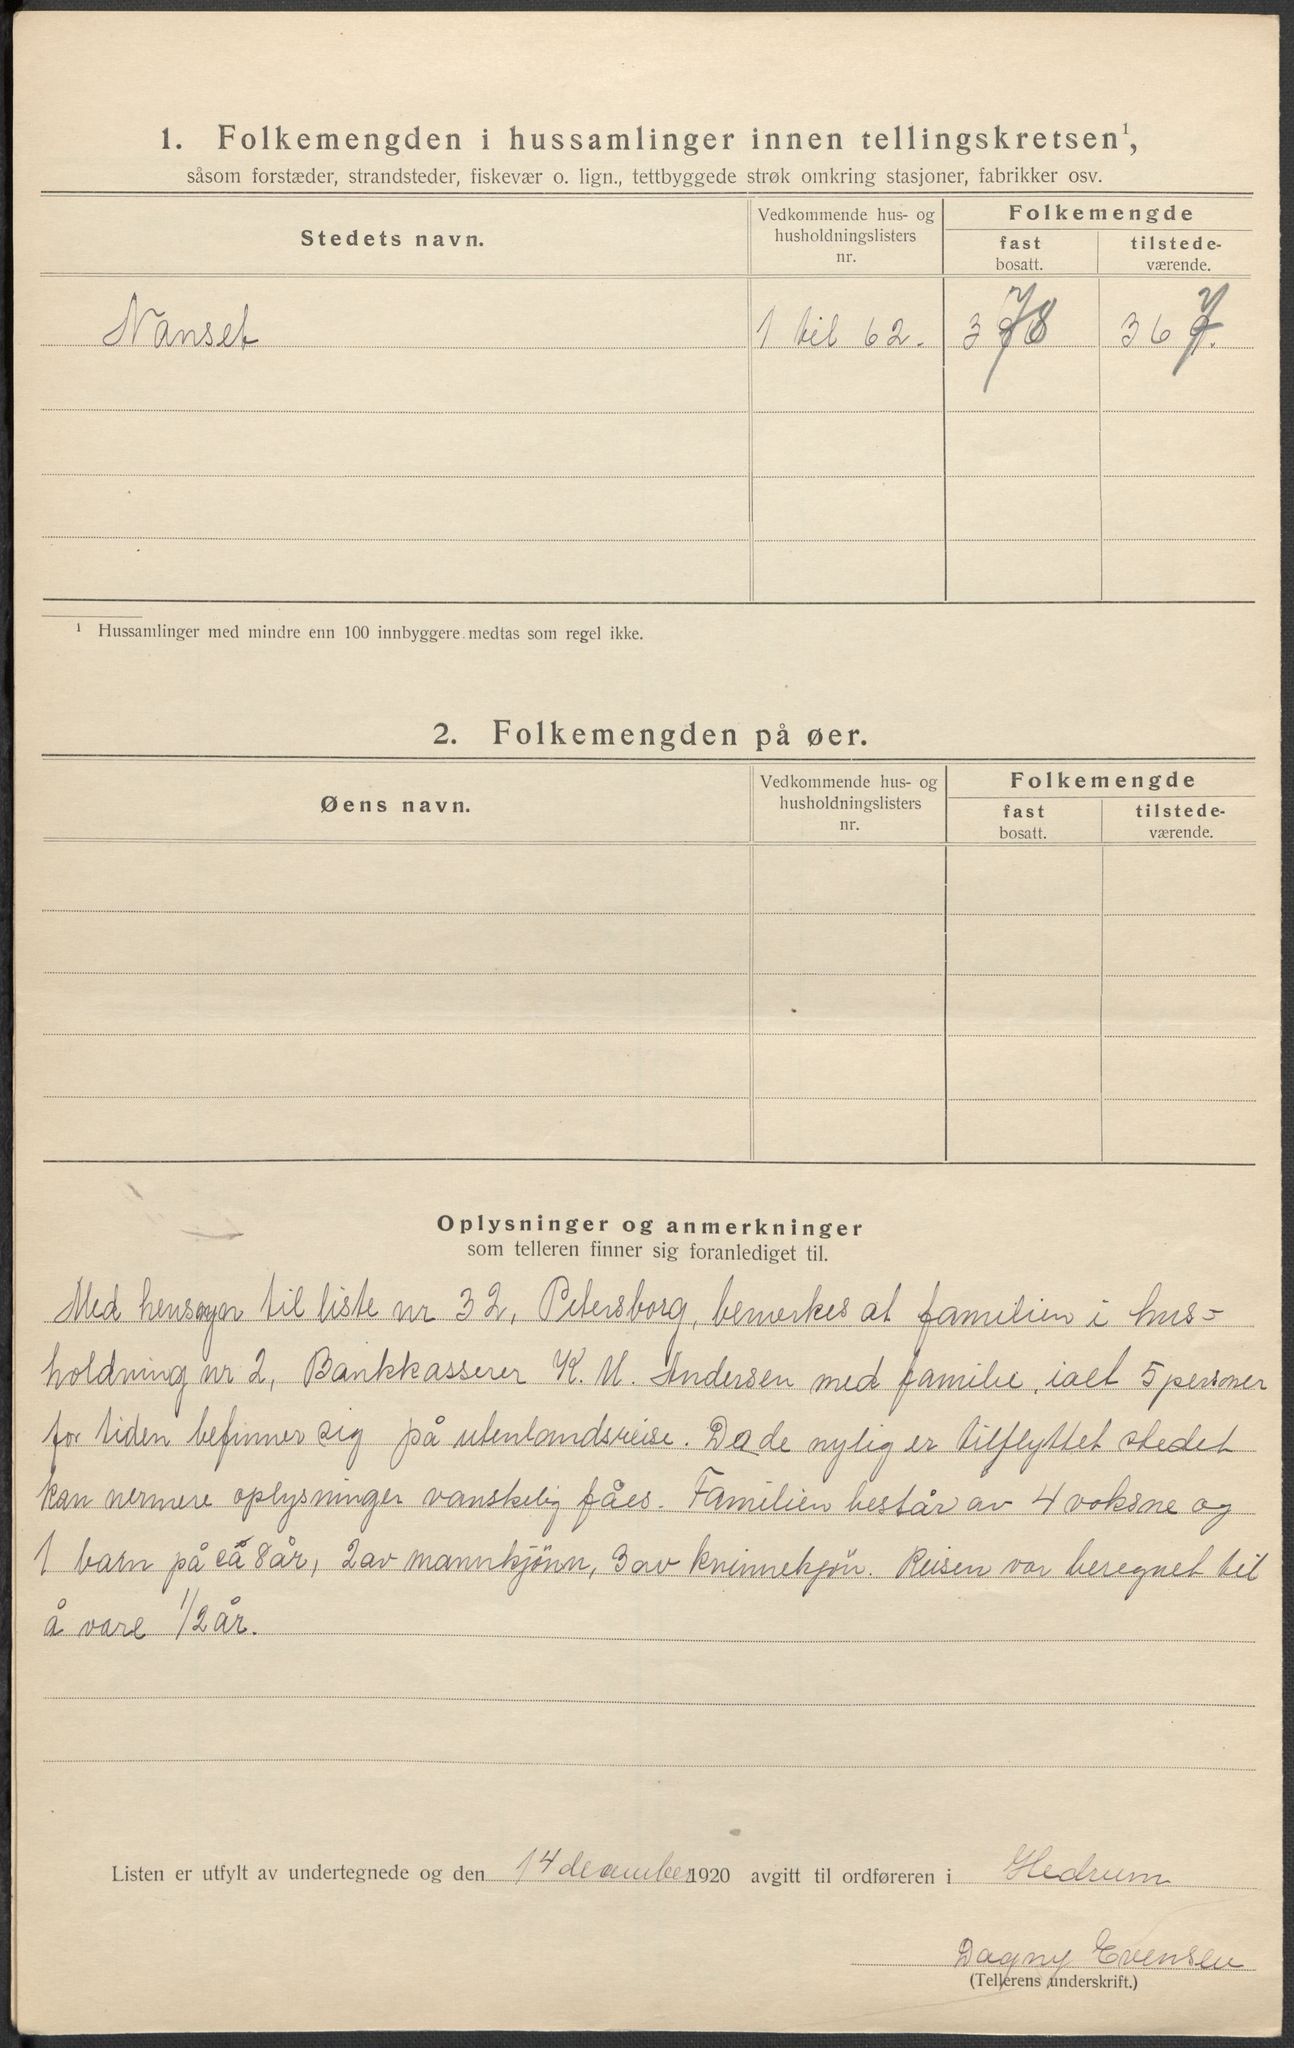 1. Folkemengden i hussamlinger innen tellingskretsen¹,
såsom forstæder, strandsteder, fiskevær o. lign., tettbyggede strøk omkring stasjoner, fabrikker osv.
Stedets navn.
Vedkommende hus- og
husholdningslisters
nr.
Folkemengde
fast
bosatt.
tilstede-
værende.
Nanset
1 til 62.
378
367.
¹ Hussamlinger med mindre enn 100 innbyggere medtas som regel ikke.
2. Folkemengden på øer.
Øens navn.
Vedkommende hus- og
husholdningslisters
nr.
Folkemengde
fast
bosatt.
tilstede-
værende.
Oplysninger og anmerkninger
som telleren finner sig foranlediget til.
Med hensyn til liste nr 32, Petersborg, bemerkes at familien i hus-
holdning nr 2, Bankkasserer K. M. Andersen med familie, ialt 5 personer
for tiden befinner sig på utenlandsreise. Da de nylig er tilflyttet stedet
kan nermere oplysninger vanskelig fåes. Familien består av 4 voksne og
1 barn på ca 8 år, 2 av mannkjønn, 3 av kvinnekjøn. Reisen var beregnet til
å vare 1/2 år.
Listen er utfylt av undertegnede og den 14 december 1920 avgitt til ordføreren i Hedrum
Dagny Evensen
(Tellerens underskrift.)